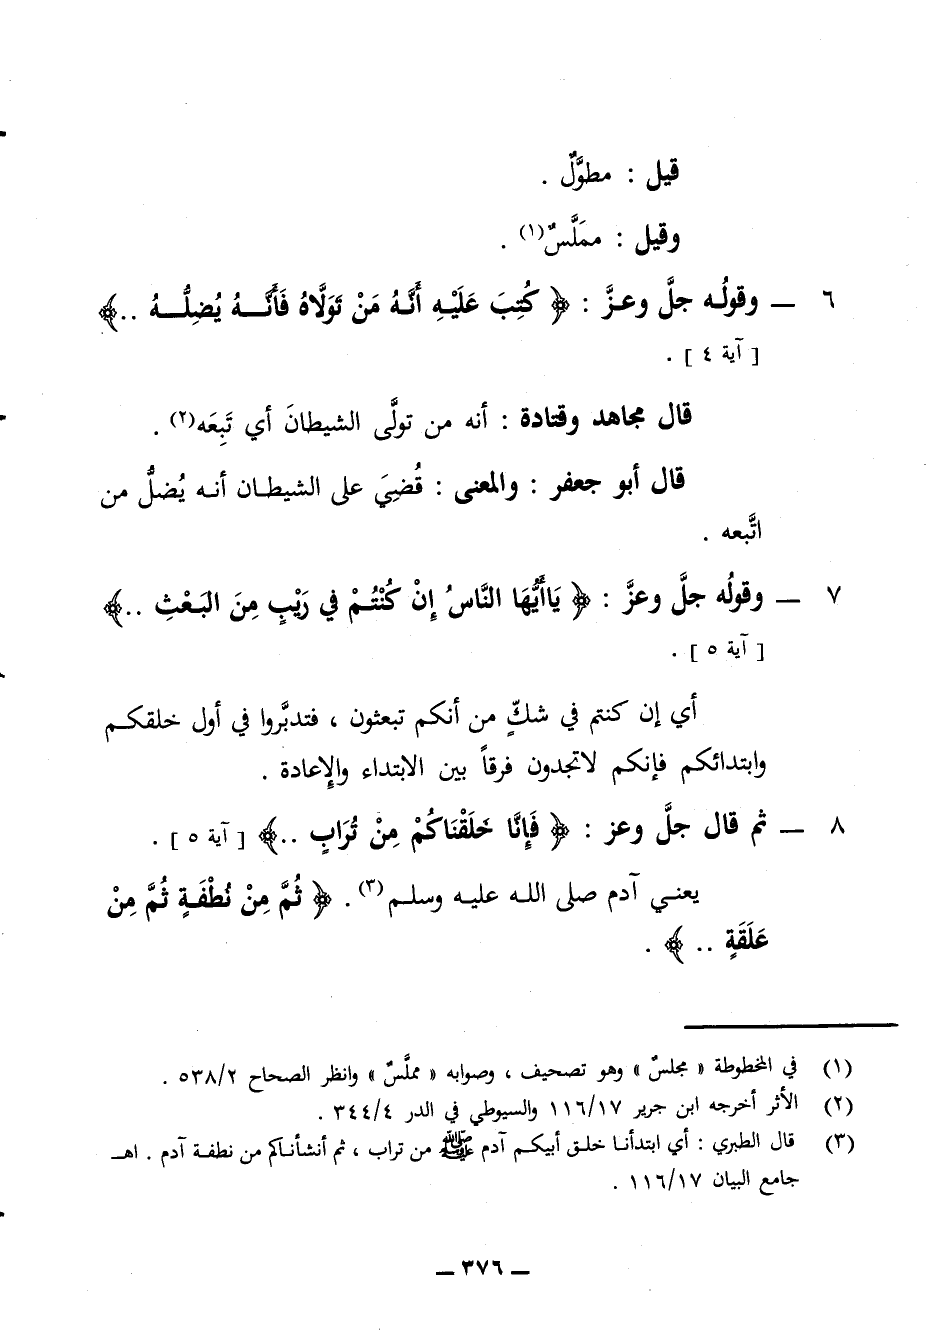 قيل : مطوَّلٌ .
وقيل : مملَّسٌ(١) .
٦ ــ وقولُه جلَّ وعزَّ : ﴿ كُتِبَ عَلَيْهِ أَنَّهُ مَنْ تَوَلَّاهُ فَأَنَّهُ يُضِلُّهُ ..﴾
[ آية ٤ ] .
قال مجاهد وقتادة : أنه من تولَّى الشيطانَ أي تَبِعَه(٢) .
قال أبو جعفر : والمعنى : قُضِيَ على الشيطان أنه يُضلُّ من
اتَّبعه .
٧ ــ وقولُه جلَّ وعزَّ : ﴿ يَاأَيُّهَا النَّاسُ إِنْ كُنْتُمْ فِي رَيْبٍ مِنَ البَعْثِ ..﴾
[ آية ٥ ] .
أي إن كنتم في شكٍّ من أنكم تبعثون ، فتدبَّروا في أول خلقكم
وابتدائكم فإنكم لاتجدون فرقاً بين الابتداء والإعادة .
٨ ــ ثم قال جلَّ وعز : ﴿ فَإِنَّا خَلَقْنَاكُمْ مِنْ تُرَابٍ ..﴾ [ آية ٥ ] .
يعني آدم صلى الله عليه وسلم(٣) . ﴿ ثُمَّ مِنْ نُطْفَةٍ ثُمَّ مِنْ
عَلَقَةٍ .. ﴾ .
(١) في المخطوطة « مجلسٌ » وهو تصحيف ، وصوابه « مملَّسٌ » وانظر الصحاح ٥٣٨/٢ .
(٢) الأثر أخرجه ابن جرير ١١٦/١٧ والسيوطي في الدر ٣٤٤/٤ .
(٣) قال الطبري : أي ابتدأنا خلق أبيكم آدم ﷺ من تراب ، ثم أنشأناكم من نطفة آدم . اهـ
جامع البيان ١١٦/١٧ .
ــ ٣٧٦ ــ